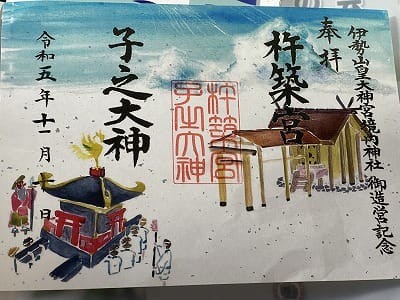 伊勢山皇大神宮境内神社 御造営記念
奉拝
杵築宮
杵築宮
子之大神
子之大神
令和五年十一月 日